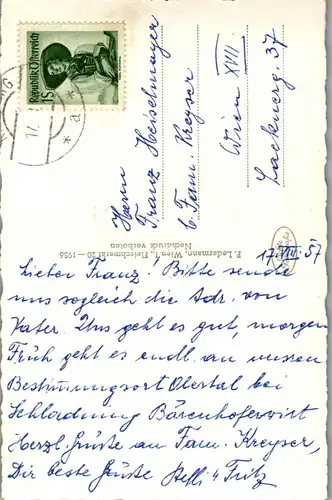 Republik Österreich
1S
17.
* a *
Herrn
Franz Heiselmayer
b. Fam. Kreyser
Wien XVII.
Lacknerg. 37
P. Ledermann, Wien I., Fleischmarkt 20 — 1956
Nachdruck verboten
17. VIII. 57
Lieber Franz! Bitte sende
uns sogleich die Adr. von
Vater. Uns geht es gut, morgen
Früh geht es endl. an unseren
Bestimmungsort Obertal bei
Schladming Bärenhoferwirt
Herzl. Grüße an Fam. Kreyser,
Dir beste Grüße Steffi u Fritz